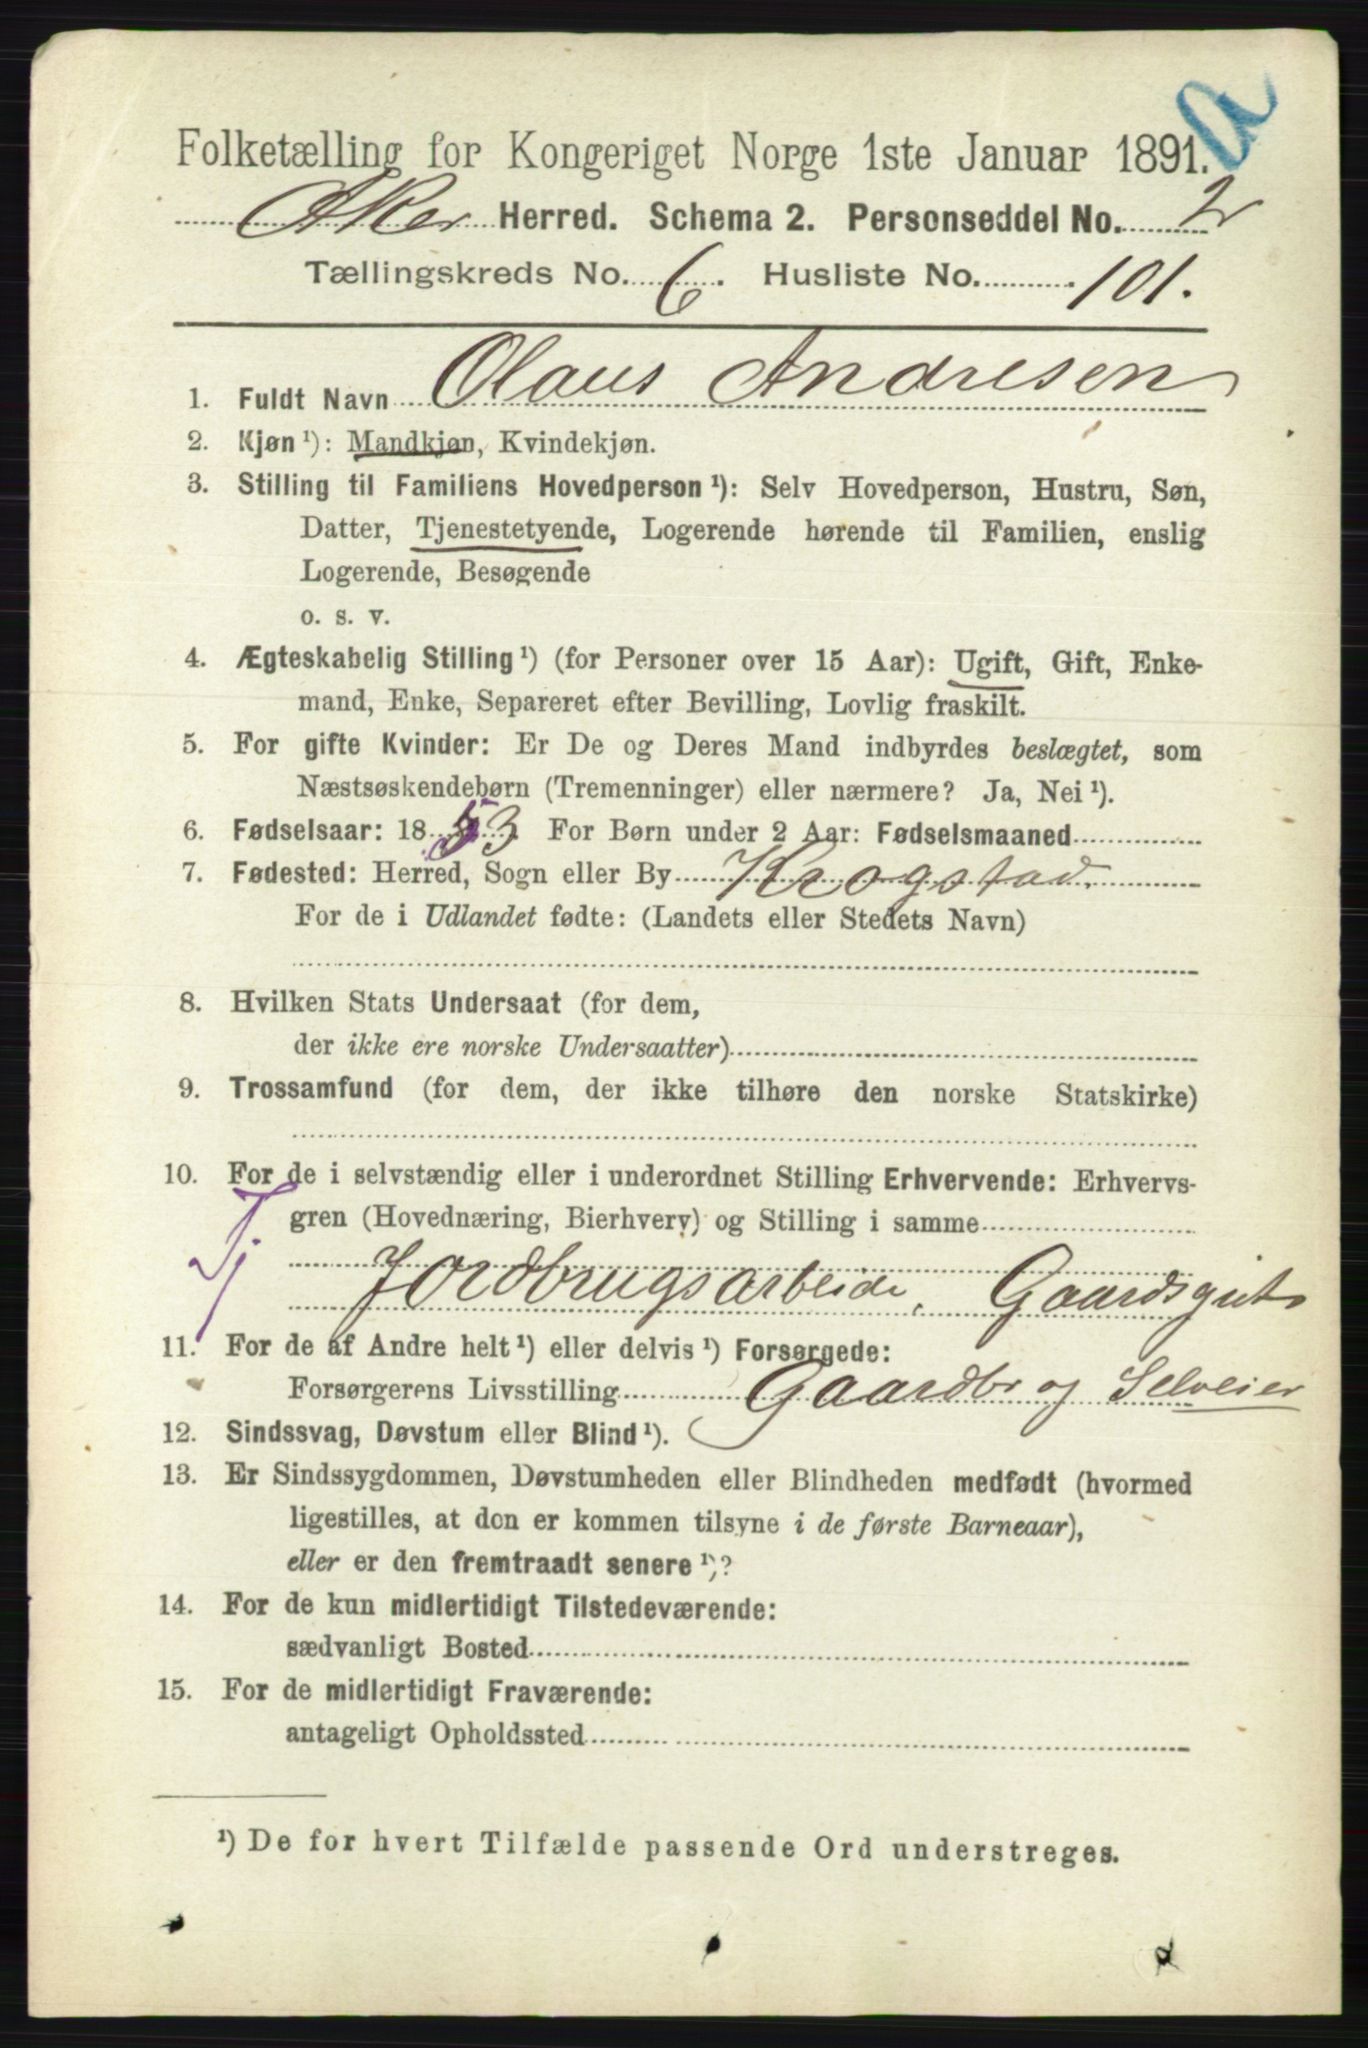 a
Folketælling for Kongeriget Norge 1ste Januar 1891.
Aker Herred. Schema 2. Personseddel No. 2
Tællingskreds No. 6. Husliste No. 101.
1. Fuldt Navn Olaus Andresen
2. Kjøn ¹): Mandkjøn, Kvindekjøn.
3. Stilling til Familiens Hovedperson ¹): Selv Hovedperson, Hustru, Søn,
Datter, Tjenestetyende, Logerende hørende til Familien, enslig
Logerende, Besøgende
o. s. v.
4. Ægteskabelig Stilling ¹) (for Personer over 15 Aar): Ugift, Gift, Enke-
mand, Enke, Separeret efter Bevilling, Lovlig fraskilt.
5. For gifte Kvinder: Er De og Deres Mand indbyrdes beslægtet, som
Næstsøskendebørn (Tremenninger) eller nærmere? Ja, Nei ¹).
6. Fødselsaar: 1853 For Børn under 2 Aar: Fødselsmaaned
7. Fødested: Herred, Sogn eller By Krogstad.
For de i Udlandet fødte: (Landets eller Stedets Navn)
8. Hvilken Stats Undersaat (for dem,
der ikke ere norske Undersaatter)
9. Trossamfund (for dem, der ikke tilhøre den norske Statskirke)
10. For de i selvstændig eller i underordnet Stilling Erhvervende: Erhvervs-
gren (Hovednæring, Bierhverv) og Stilling i samme
Tj. Jordbrugsarbeide, Gaardsgut
11. For de af Andre helt ¹) eller delvis ¹) Forsørgede:
Forsørgerens Livsstilling Gaardbr og Selveier
12. Sindssvag, Døvstum eller Blind ¹).
13. Er Sindssygdommen, Døvstumheden eller Blindheden medfødt (hvormed
ligestilles, at den er kommen tilsyne i de første Barneaar),
eller er den fremtraadt senere ¹)?
14. For de kun midlertidigt Tilstedeværende:
sædvanligt Bosted
15. For de midlertidigt Fraværende:
antageligt Opholdssted
¹) De for hvert Tilfælde passende Ord understreges.